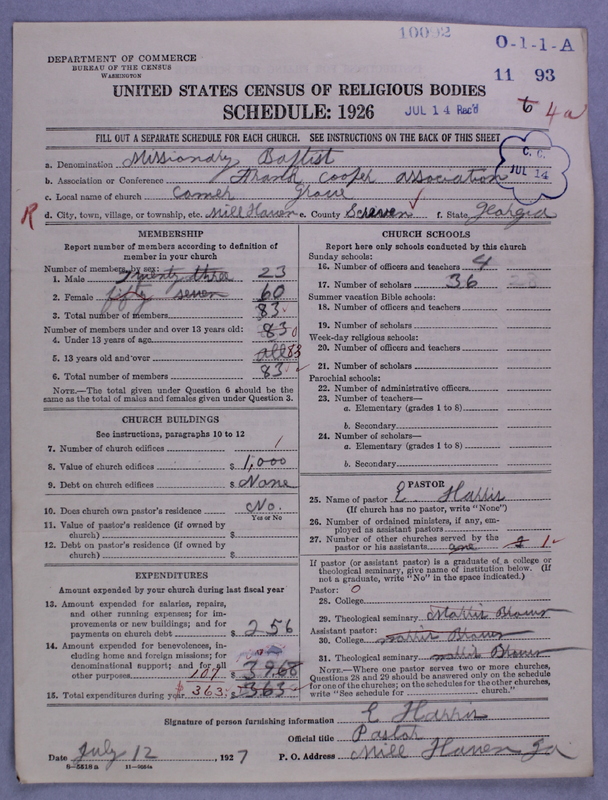 10092
O-1-1-A
11 93
DEPARTMENT OF COMMERCE
BUREAU OF THE CENSUS
WASHINGTON
UNITED STATES CENSUS OF RELIGIOUS BODIES
SCHEDULE: 1926
JUL 14 Rec'd
4a
FILL OUT A SEPARATE SCHEDULE FOR EACH CHURCH. SEE INSTRUCTIONS ON THE BACK OF THIS SHEET
C. C.
JUL 14
a. Denomination Missionary Baptist
b. Association or Conference Frank Cooper association
c. Local name of church
R d. City, town, village, or township, etc. Mill Haven e. County Screven f. State Georgia
MEMBERSHIP
Report number of members according to definition of
member in your church
Number of members, by sex:
1. Male Twenty three 23
2. Female fifty seven 60
3. Total number of members 83
Number of members under and over 13 years old:
4. Under 13 years of age 83 0
5. 13 years old and over all 83
6. Total number of members 83
NOTE.—The total given under Question 6 should be
the same as the total of males and females given under Question 3.
CHURCH BUILDINGS
See instructions, paragraphs 10 to 12
7. Number of church edifices 1
8. Value of church edifices $ 1,000
9. Debt on church edifices $ None
10. Does church own pastor's residence? No.
Yes or No
11. Value of pastor's residence (if owned by
church) $
12. Debt on pastor's residence (if owned by
church) $
EXPENDITURES
Amount expended by your church during last fiscal year
13. Amount expended for salaries, repairs,
and other running expenses; for im-
provements or new buildings; and for
payments on church debt $ 256
14. Amount expended for benevolences, in-
cluding home and foreign missions; for
denominational support; and for all
other purposes 107 $ 39.68
15. Total expenditures during year $ 363; $ 363
CHURCH SCHOOLS
Report here only schools conducted by this church
Sunday schools:
16. Number of officers and teachers 4
17. Number of scholars 36
Summer vacation Bible schools:
18. Number of officers and teachers
19. Number of scholars
Week-day religious schools:
20. Number of officers and teachers
21. Number of scholars
Parochial schools:
22. Number of administrative officers
23. Number of teachers—
a. Elementary (grades 1 to 8)
b. Secondary
24. Number of scholars—
a. Elementary (grades 1 to 8)
b. Secondary
PASTOR
25. Name of pastor E Harris
(If church has no pastor, write "None")
26. Number of ordained ministers, if any, em-
ployed as assistant pastors
27. Number of other churches served by the
pastor or his assistants one 1
If pastor (or assistant pastor) is a graduate of a college or
theological seminary, give name of institution below. (If
not a graduate, write "No" in the space indicated.)
Pastor: 0
28. College
29. Theological seminary Mattis Brown
Assistant pastor:
30. College mattis Brown
31. Theological seminary mattis Brown
NOTE.—Where one pastor serves two or more churches,
Questions 28 and 29 should be answered only on the schedule
for one of the churches; on the schedules for the other churches,
write "See schedule for church."
Signature of person furnishing information E Harris
Official title Pastor
Date July 12, 1927 P. O. Address Mill Haven Ga
8—5518a 11—9054a